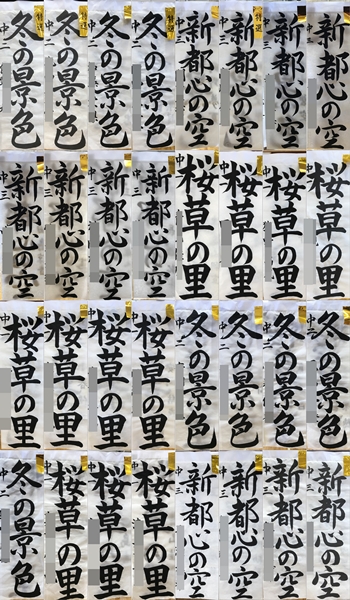 特選
冬の景色
中二
特選
冬の景色
中二
冬の景色
中二
特選
冬の景色
中二
特選
新都心の空
中三
新都心の空
中三
新都心の空
中三
新都心の空
中三
新都心の空
中三
新都心の空
中三
新都心の空
中三
新都心の空
中三
桜草の里
中
桜草の里
中
桜草の里
中
桜草の里
中
桜草の里
中
桜草の里
中
桜草の里
中
桜草の里
中
冬の景色
中二
冬の景色
中二
冬の景色
中二
冬の景色
中二
冬の景色
中二
桜草の里
中
桜草の里
中
桜草の里
中
新都心の空
中三
新都心の空
中三
新都心の空
中三
新都心の空
中三